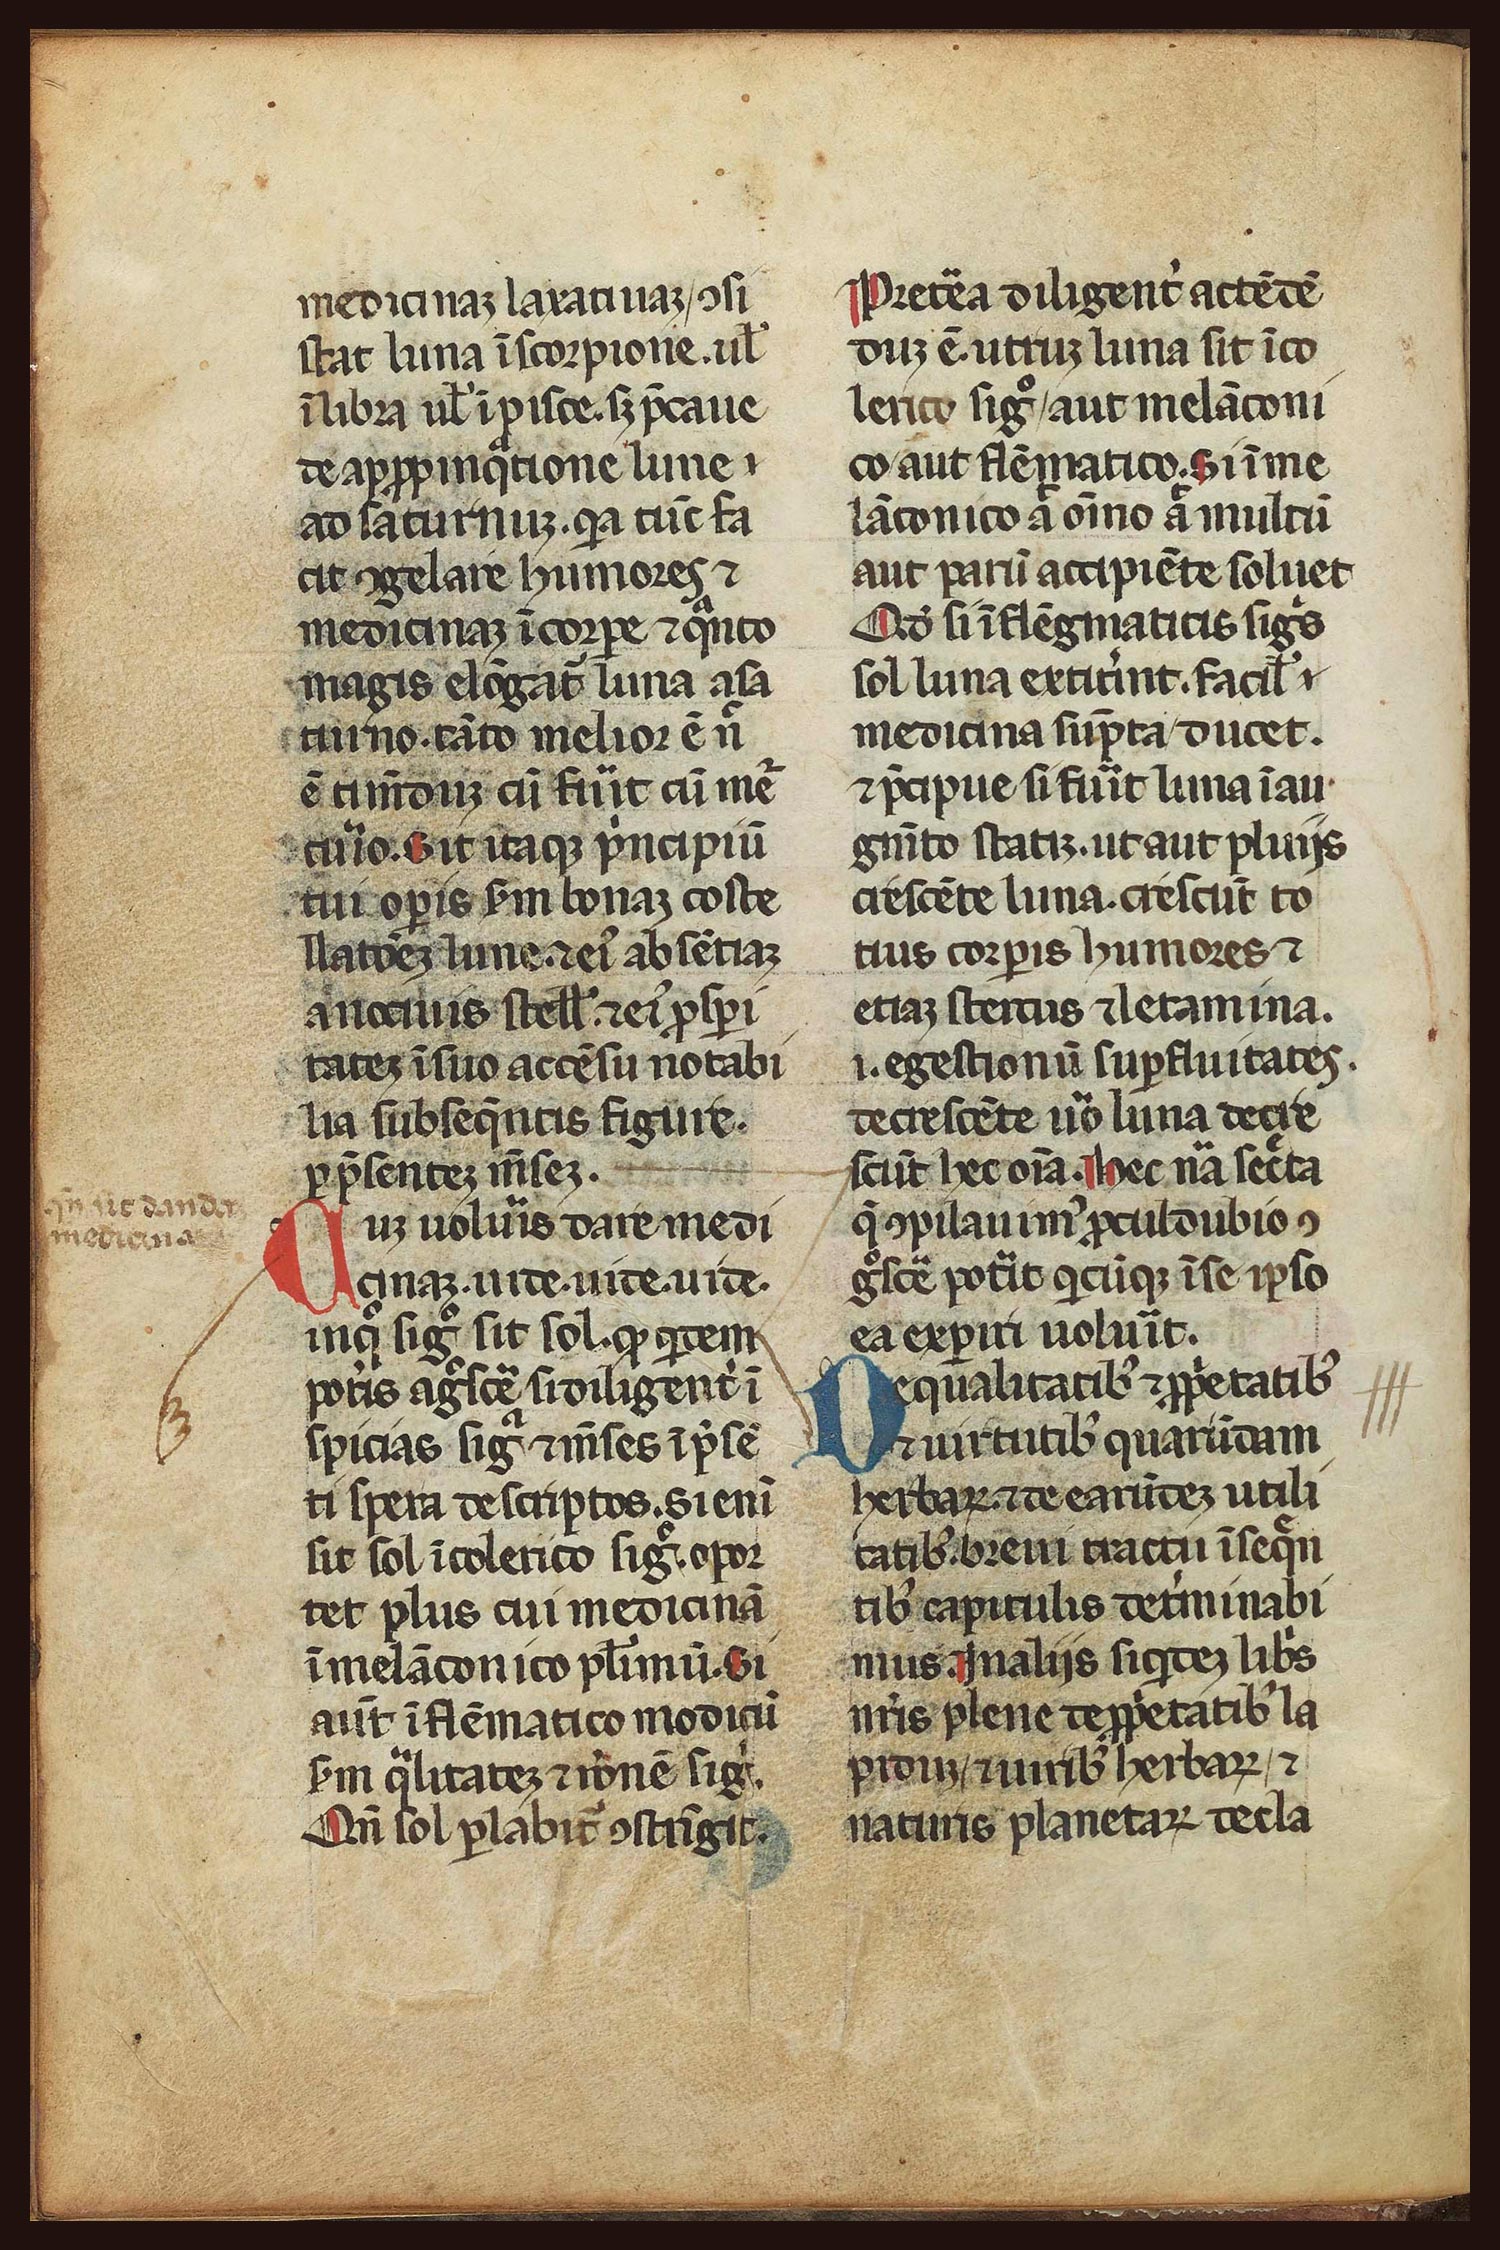 medicinaȝ laxatiuaȝ/ ↄsi
stat luna ī scorpione. ul̓
ī libra ul̓ ī pisce. sȝ p̄caue
te apꝓpinq̄tione lune ⁊
ad saturnuȝ. qꝛ tūc fa
cit ↄgelare humores ⁊
medicinaȝ ī corꝑe ⁊ qᵃnto
magis elōgat᷑ luna a sa
turno. tāto melior ē n̄
ē timēduȝ cū fuīt cū m̄e
curio. Sit itaqȝ pⁱncipiū
tui oꝑis sꝫm bonaȝ coste
llatōeȝ lune. ⁊ ei᷒ absētiaȝ
a nociuis stell̓. ⁊ ei᷒ ꝓsꝑi
tateȝ ī suo accēsu notabi
lia subseq̄ntis figure.
ꝑ p̄senteȝ m̄seȝ.
qn̄ sit danda
medicina
Cuȝ uolu̓is dare medi
cinaȝ. uide. uide. uide.
in qͦ sigͦ sit sol. qꝫ qͥdem
pot̓is agͦscē si diligent̓ ī
spicias sigᵃ ⁊ m̄ses ī p̄sē
ti spera descriptos. Si enī
sit sol ī colerico sigͦ. opor
tet plus cui medicinā
ī melāconico pl̓imū. Si
aūt ī flēmatico modicū
sꝫm qᵃlitateȝ ⁊ rōnē sigͥ.
Qn̄ sol ꝑ labit᷑ ↄstrīgit.
Pretēa diligent̓ actēdē
duȝ ē. utruȝ luna sit ī co
lerico sigͦ/ aut melāconi
co/ aut flēmatico. Si ī me
lāconico aᵗ oīno aᵗ multū
aut parū accipiēte soluet
Qđ si ī flēgmaticis sigͥs
sol luna extit̓int. facil̓r
medicina sūpta/ ducet.
⁊ p̄cipue si fuīt luna ī au
gm̄to statȝ. ut aut pluijs
crescēte luna. crescūt to
tius corꝑis humores ⁊
etiaȝ stercus ⁊ letamina.
.i. egestionū suꝑfluitates.
decrescēte uͦo luna decre
scūt hec oīa. Hec nᵃ secᵗta
q̄ ↄpilauim᷒ ꝓculdubio ↄ
gͦscē pot̓it qͥcūqȝ ī se ipso
ea exꝑiri uolu̓it.
De qualitatib᷒ ⁊ ꝓpͥetatib᷒
⁊ uirtutib᷒ quarūdam
herbaꝝ. ⁊ de earūdeȝ utili
tatib᷒. breui tractu ī seqᵉn
tib᷒ capitulis det̓minabi
mus. In alijs siqͥdeȝ lib̓s
nr̄is plene de ꝓpͥetatib᷒ la
piduȝ/ ⁊ uirib᷒ herbaꝝ/ ⁊
naturis planetaꝝ decla